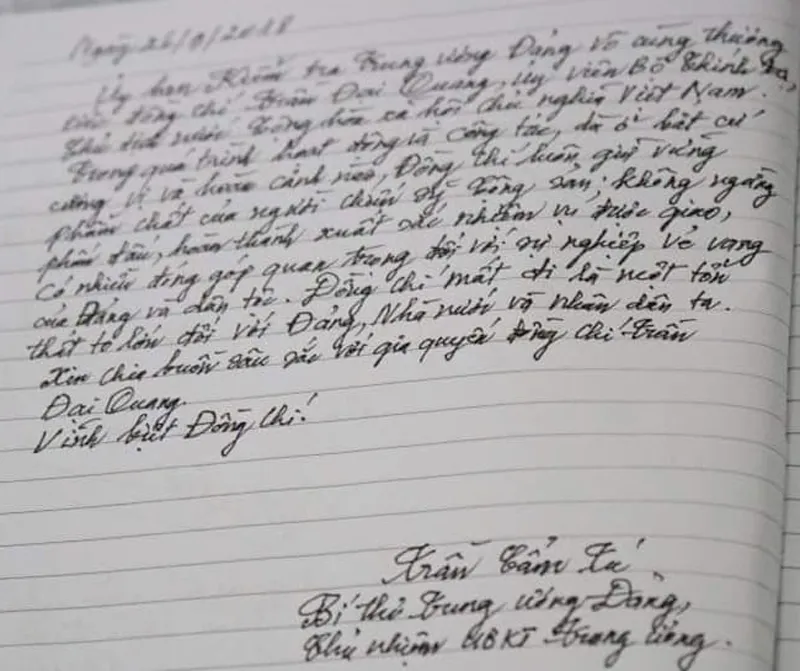 Ngày 26/9/2018
Ủy ban Kiểm tra Trung ương Đảng vô cùng thương
tiếc đồng chí Trần Đại Quang, Ủy viên Bộ Chính trị,
Chủ tịch nước Cộng hòa xã hội chủ nghĩa Việt Nam.
Trong quá trình hoạt động và công tác, dù ở bất cứ
cương vị và hoàn cảnh nào, Đồng chí luôn giữ vững
phẩm chất của người chiến sỹ Cộng sản; không ngừng
phấn đấu, hoàn thành xuất sắc nhiệm vụ được giao,
có nhiều đóng góp quan trọng đối với sự nghiệp vẻ vang
của Đảng và dân tộc. Đồng chí mất đi là một tổn
thất to lớn đối với Đảng, Nhà nước và nhân dân ta.
Xin chia buồn sâu sắc với gia quyến đồng chí Trần
Đại Quang.
Vĩnh biệt Đồng chí!
Trần Cẩm Tú
Bí thư Trung ương Đảng,
Chủ nhiệm UBKT Trung ương.